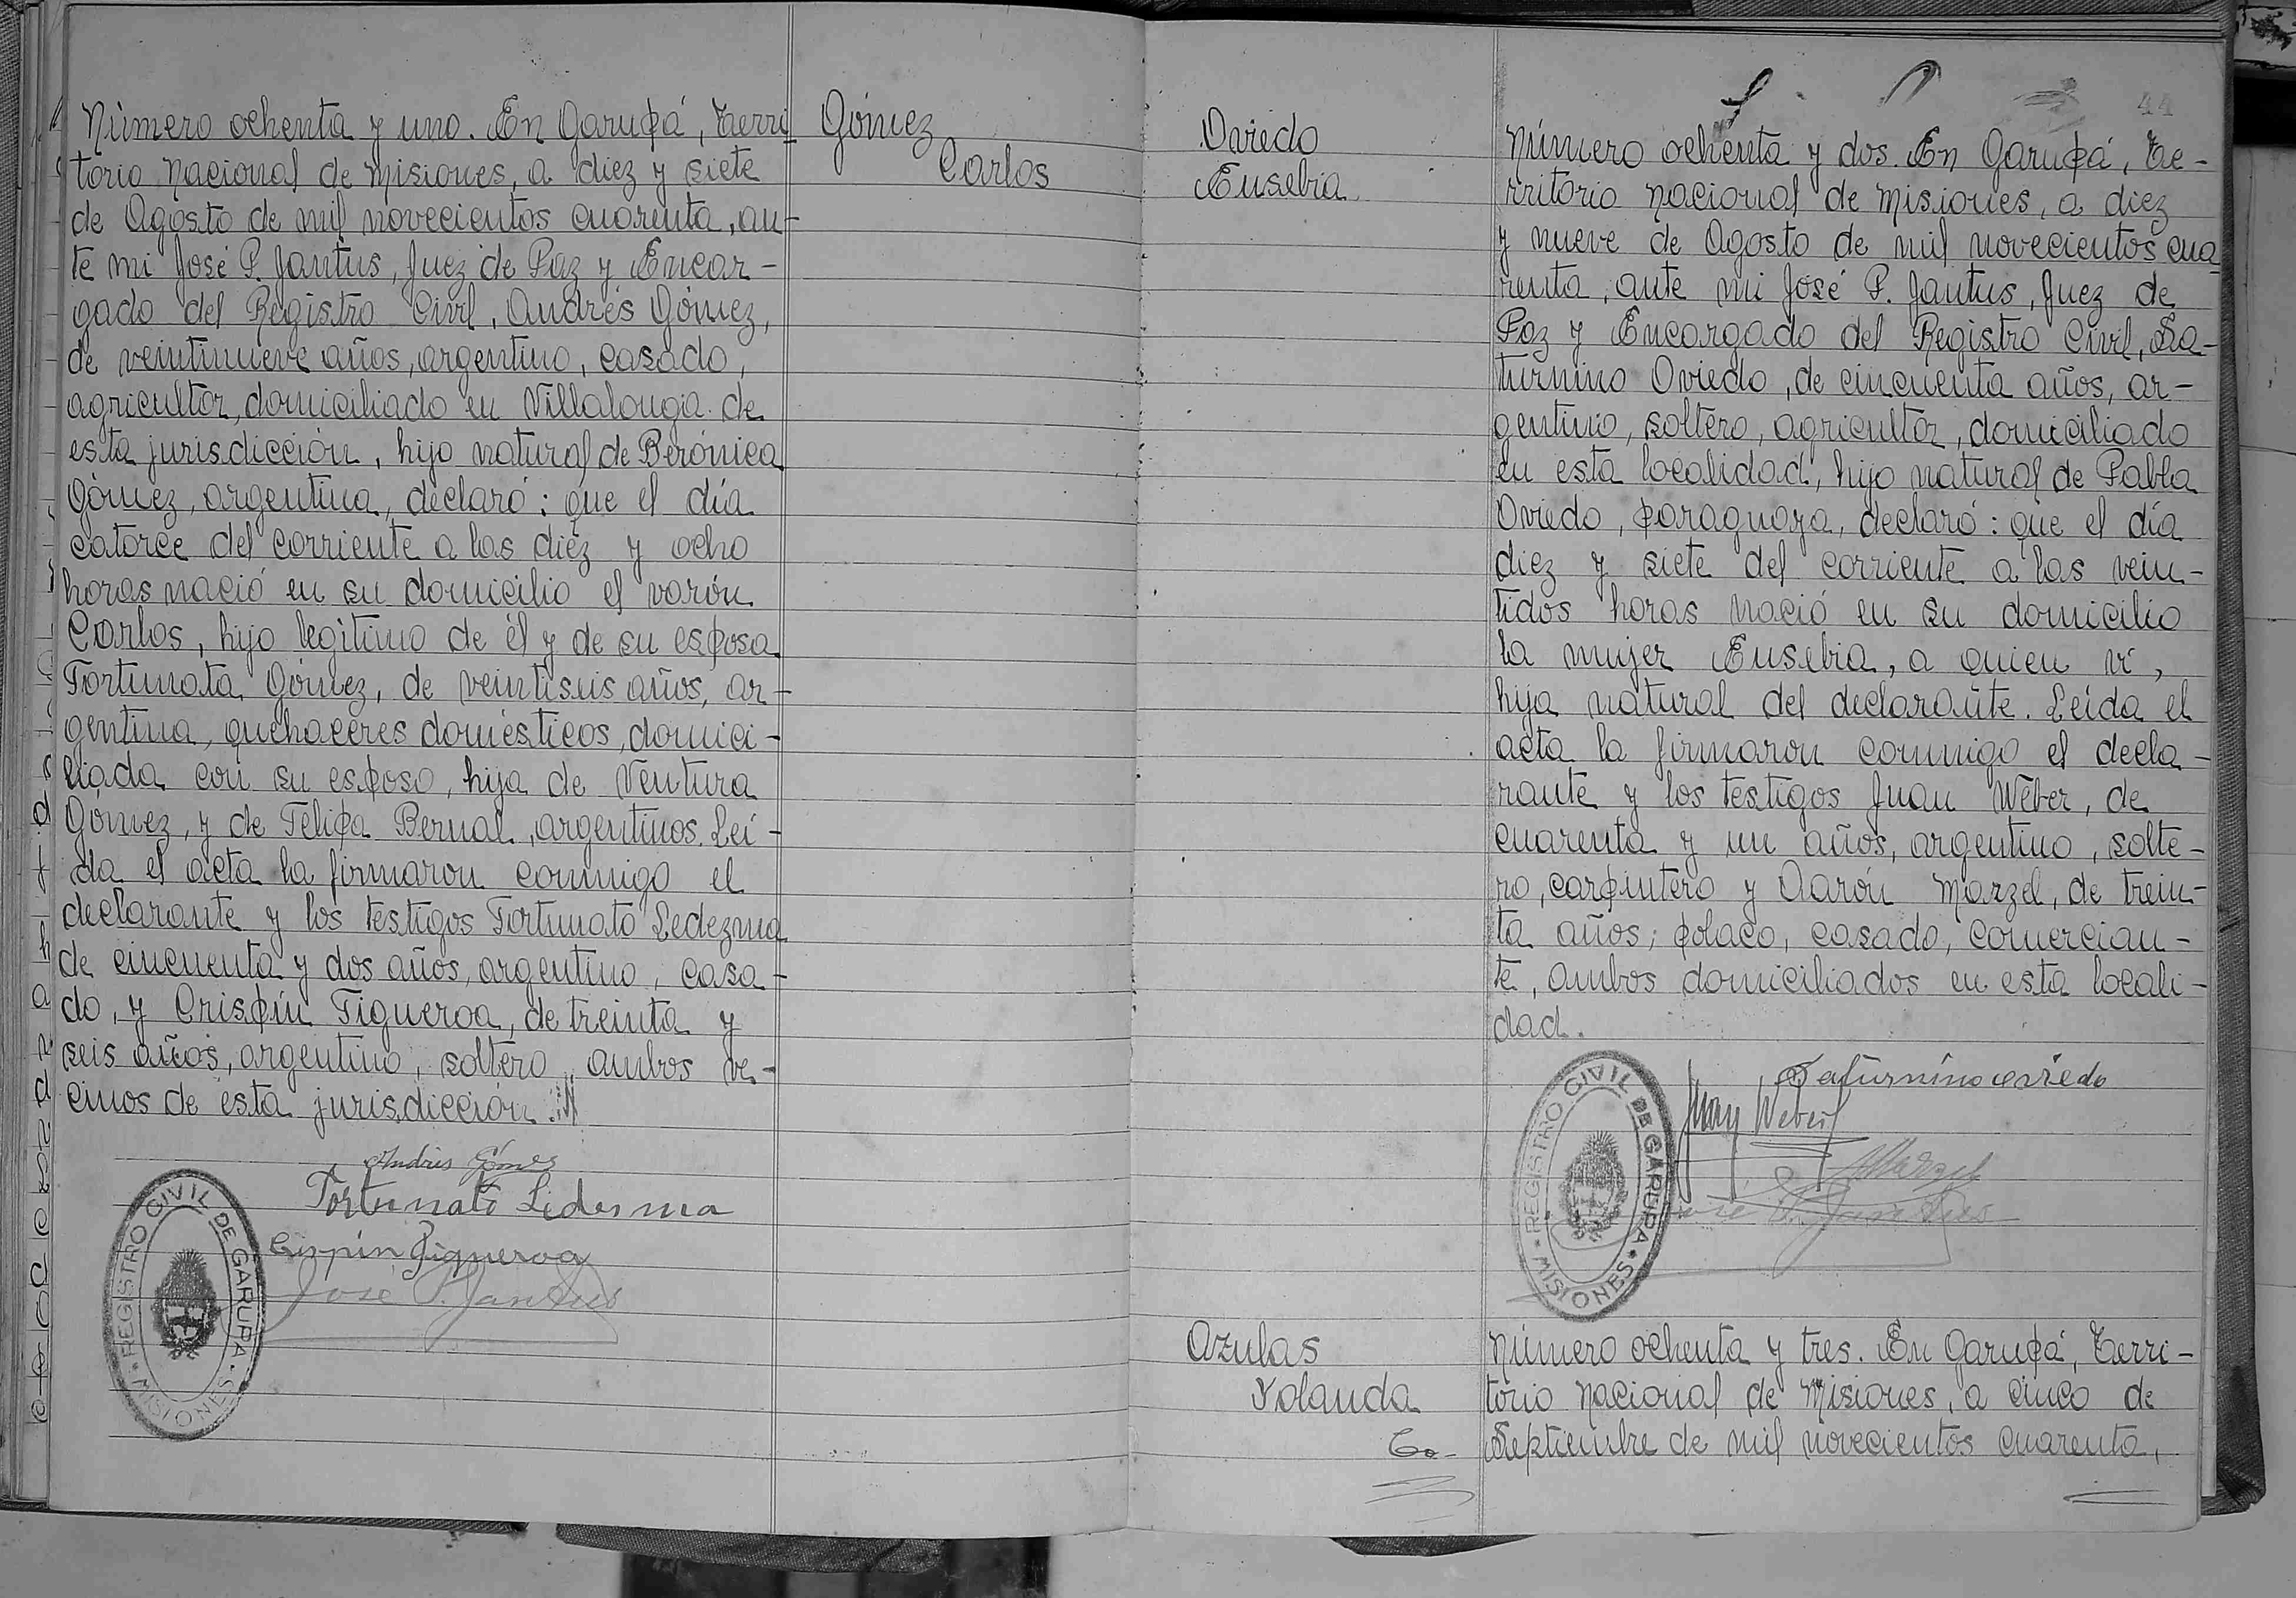 Número ochenta y uno. En Garupá, Terri-
torio Nacional de Misiones, a diez y siete
de Agosto de mil novecientos cuarenta, an-
te mi José P. Jantus, Juez de Paz y Encar-
gado del Registro Civil, Andrés Gómez,
de veintinueve años, argentino, casado,
agricultor, domiciliado en Villalonga de
esta jurisdicción, hijo natural de Berónica
Gómez, argentina, declaró: que el día
catorce del corriente a las diez y ocho
horas nació en su domicilio el varón
Carlos, hijo legitimo de él y de su esposa
Fortunata Gómez, de veintiseis años, ar-
gentina, quehaceres domésticos, domici-
liada con su esposo, hija de Ventura
Gómez, y de Felipa Bernal, argentinos. Leí-
da el acta la firmaron conmigo el
declarante y los testigos Fortunato Ledezma
de cincuenta y dos años, argentino, casa-
do, y Crispín Figueroa, de treinta y
seis años, argentino, soltero, ambos ve-
cinos de ésta jurisdicción.
Andres Gómes
Fortunato Ledesma
Crispin Figueroa
José P. Jantus
REGISTRO CIVIL DE GARUPA
* MISIONES *
Gómez
Carlos
Oviedo
Eusebia
44
Número ochenta y dos. En Garupá, Te-
rritorio Nacional de Misiones, a diez
y nueve de Agosto de mil novecientos cua-
renta, ante mi José P. Jantus, Juez de
Paz y Encargado del Registro Civil, Sa-
turnino Oviedo, de cincuenta años, ar-
gentino, soltero, agricultor, domiciliado
en esta localidad, hijo natural de Pabla
Oviedo, paraguaya, declaró: que el día
diez y siete del corriente a las vein-
tidos horas nació en su domicilio
la mujer Eusebia, a quien ví,
hija natural del declarante. Leída el
acta la firmaron conmigo el decla-
rante y los testigos Juan Wéber, de
cuarenta y un años, argentino, solte-
ro, carpintero y Aarón Marzel, de trein-
ta años, polaco, casado, comercian-
te, ambos domiciliados en esta locali-
dad.
Saturnino oviedo
Juan Weber
AMarzel
José P. Jantus
REGISTRO CIVIL DE GARUPA
* MISIONES *
Azulas
Yolanda
Número ochenta y tres. En Garupá, Terri-
torio Nacional de Misiones, a cinco de
Septiembre de mil novecientos cuarenta,